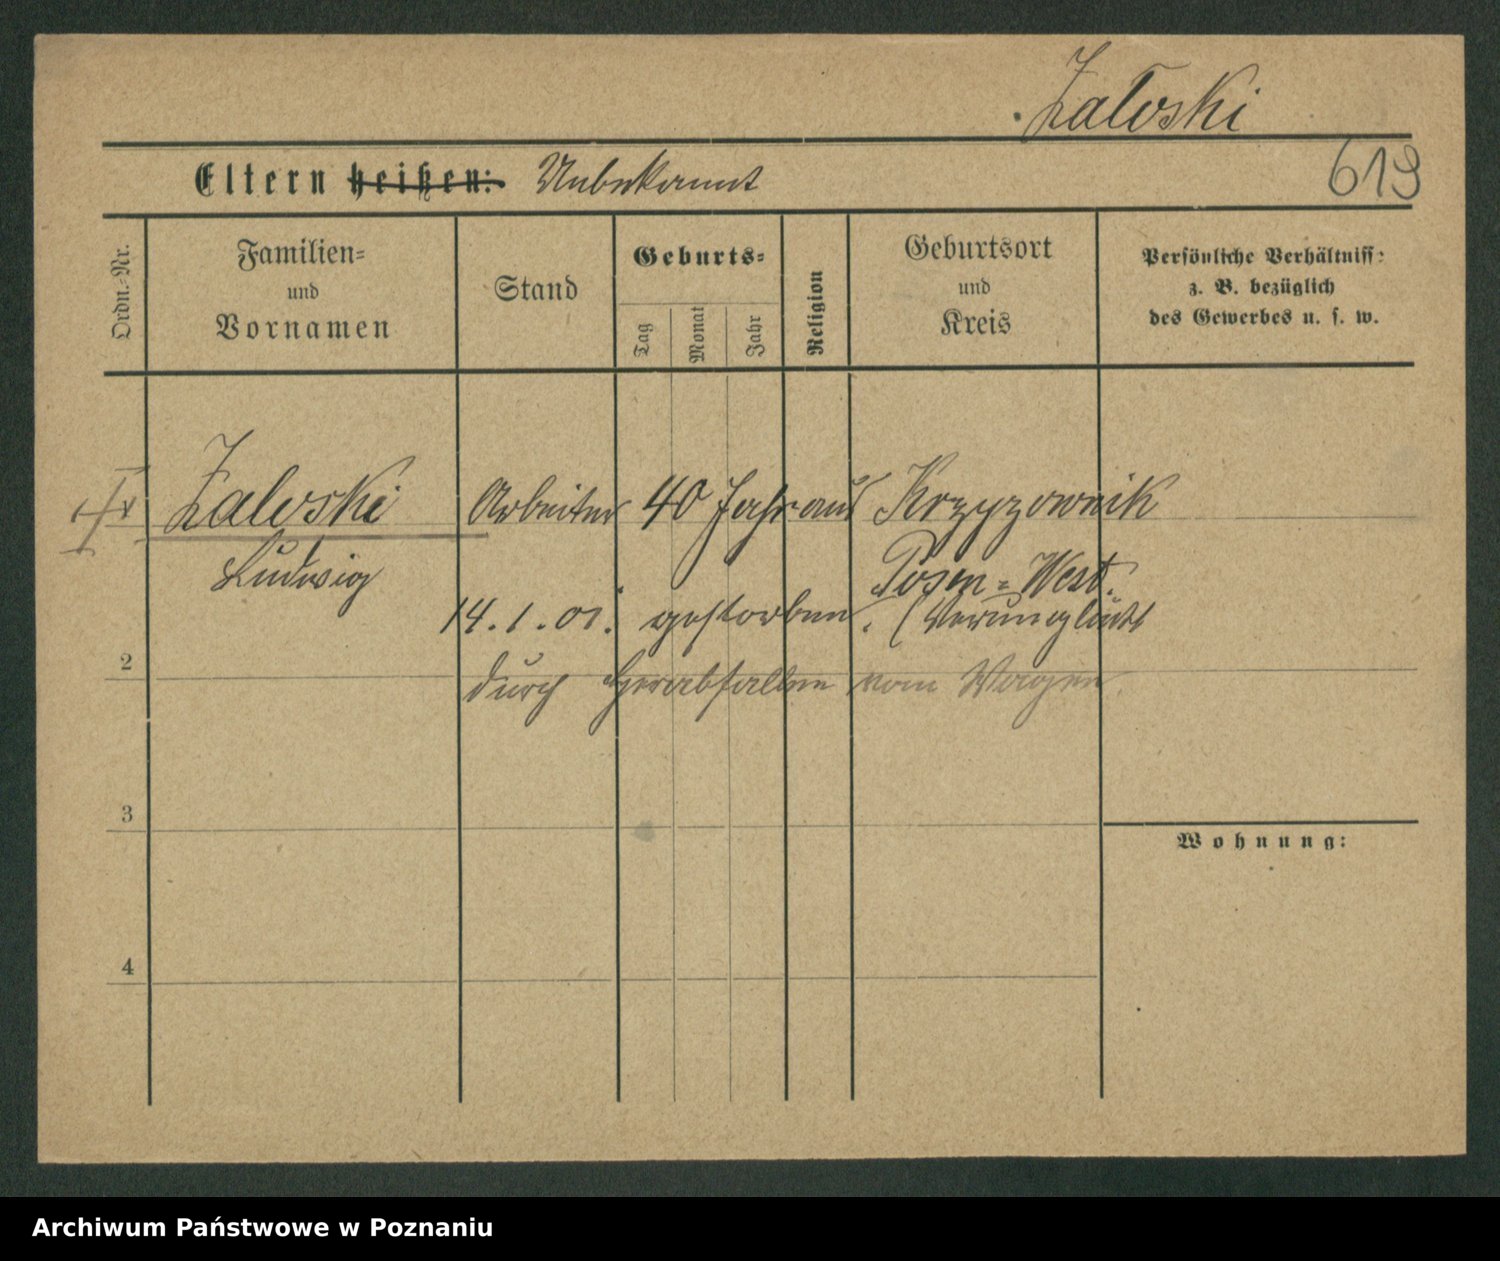 Zaloski
619
Eltern heißen: Unbekannt
Ordn.-Nr.
Familien-
und
Vornamen
Stand
Geburts-
Tag
Monat
Jahr
Religion
Geburtsort
und
Kreis
Persönliche Verhältniss:
z. B. bezüglich
des Gewerbes u. s. w.
Zaloski Arbeiter 40 Jahr aus Krzyzownik
Ludwig Posen-West.
14.1.01. gestorben. (Verunglückt
durch Herabfallen vom Wagen.
2
3
Wohnung:
4
Archiwum Państwowe w Poznaniu